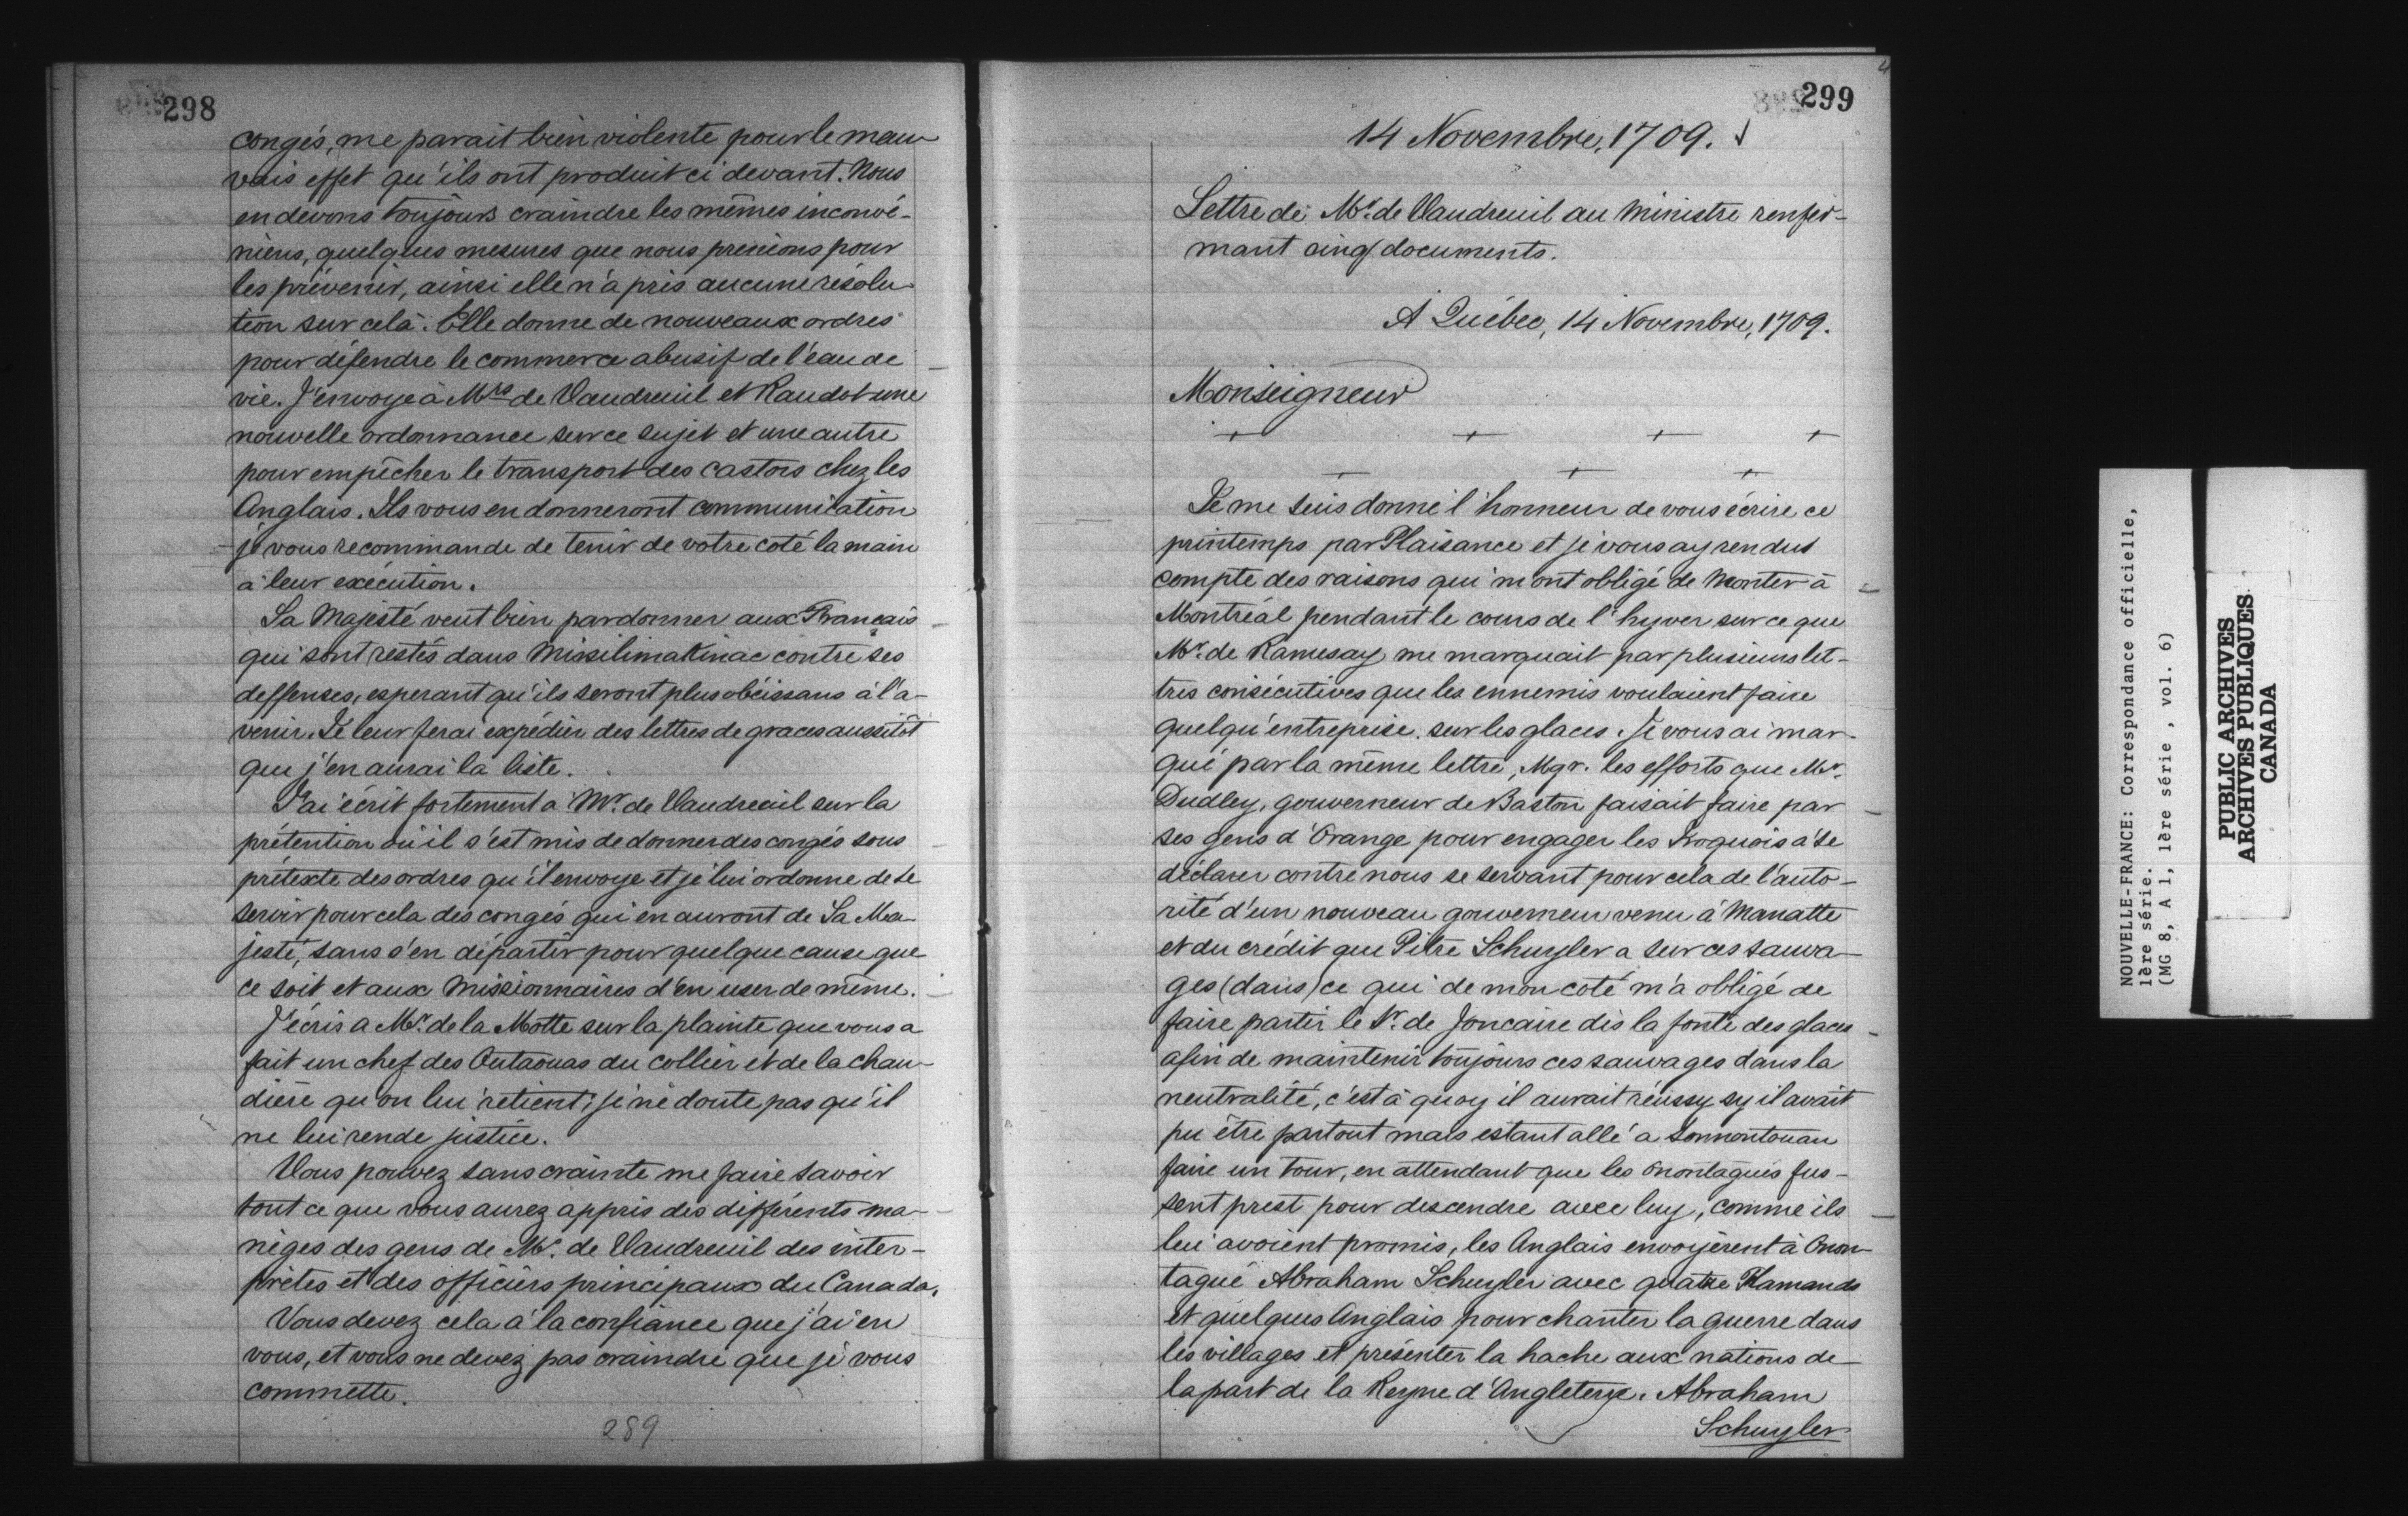 298
congés, me parait bien violente pour le mau
vais effet qu'ils ont produit ci devant. Nous
en devons toujours craindre les mêmes inconvé-
niens, quelques mesures que nous prenions pour
les prévenir, ainsi elle n'a pris aucune résolu
tion sur celà. Elle donne de nouveaux ordres
pour défendre le commerce abusif de l'eau de
vie. J'envoye à Mrs de Vaudreuil et Raudot une
nouvelle ordonnance sur ce sujet et une autre
pour empêcher le transport des castors chez les
Anglais. Ils vous en donneront communication
je vous recommande de tenir de votre coté la main
à leur exécution.
Sa Majesté veut bien pardonner aux Français
qui sont restés dans Missilimakinac contre ses
deffenses, esperant qu'ils seront plus obéissans à l'a-
venir. Je leur ferai expédier des lettres de graces aussitôt
que j'en aurai la liste.
J'ai écrit fortement a Mr. de Vaudreuil sur la
prétention où il s'est mis de donner des congés sous
prétexte des ordres qu'il envoye et je lui ordonne de se
servir pour cela des congés qui en auront de Sa Ma-
jesté, sans s'en départir pour quelque cause que
ce soit et aux Missionnaires d'en user de même.
J'écris a Mr. de la Motte sur la plainte que vous a
fait un chef des Outaouas du collier et de la chau-
dière qu'on lui retient; je ne doute pas qu'il
ne lui rende justice.
Vous pouvez sans crainte me faire savoir
tout ce que vous aurez appris des différents ma-
nèges des gens de Mr. de Vaudreuil des inter-
prètes et des officiers principaux du Canada.
Vous devez cela à la confiance que j'ai en
vous, et vous ne devez pas craindre que je vous
commette.
289
299
14 Novembre, 1709.
Lettre de Mr. de Vaudreuil au Ministre renfer-
mant cinq documents.
A Québec, 14 Novembre, 1709.
Monseigneur
+ + + +
+ + +
Je me suis donné l'honneur de vous écrire ce
printemps par Plaisance et je vous ay rendus
compte des raisons qui m'ont obligé de monter à
Montréal pendant le cours de l'hyver sur ce que
Mr. de Ramesay me marquait par plusieurs let-
tres consécutives que les ennemis voulaient faire
quelqu'entreprise sur les glaces. Je vous ai mar-
qué par la même lettre, Mgr. les efforts que Mr.
Dudley, gouverneur de Baston faisait faire par
ses gens d'Orange pour engager les Iroquois à se
déclarer contre nous se servant pour cela de l'auto-
rité d'un nouveau gouverneur venu à Manatte
et du crédit que Pitre Schuyler a sur ces sauva-
ges (dans) ce qui de mon coté m'a obligé de
faire partir le Sr. de Joncaire dès la fonte des glaces
afin de maintenir toujours ces sauvages dans la
neutralité, c'est à quoy il aurait réussy sy il avait
pu être partout mais estant allé a Sonnontouan
faire un tour, en attendant que les Onontagués fus-
sent prest pour descendre avec luy, comme ils
lui avoient promis, les Anglais envoyèrent à Onon-
tagué Abraham Schuyler avec quatre Flamands
et quelques Anglais pour chanter la guerre dans
les villages et présenter la hache aux nations de
la part de la Reyne d'Angleterre. Abraham
Schuyler
NOUVELLE-FRANCE: Correspondance officielle,
1ère série.
(MG 8, A 1, 1ère série , vol. 6)
PUBLIC ARCHIVES
ARCHIVES PUBLIQUES
CANADA